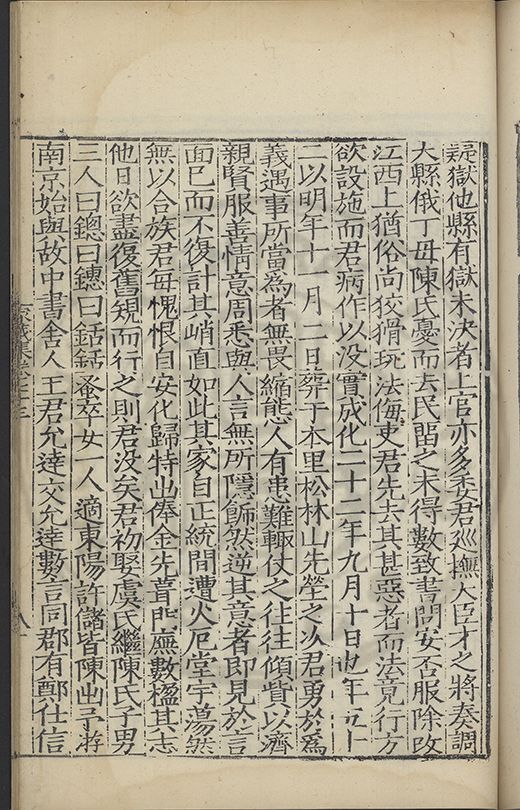 疑獄他縣有獄未決者上官亦多委君巡撫大臣才之將奏調
大縣俄丁母陳氏憂而去民留之未得數致書問安否服除改
江西上猶俗尚狡猾玩法侮吏君先去其甚惡者而法克行方
欲設施而君病作以没實成化二十二年九月十日也年五十
二以明年十一月二日葬于本里松林山先塋之次君勇於為
義遇事所當為者無畏縮態人有患難輒仗之往往傾貲以濟
親賢服善情意周悉與人言無所隱飾然逆其意者即見於言
面已而不復計其峭直如此其家自正統間遭火厄堂宇蕩然
無以合族君每愧恨自安化歸特出俸金先葺祀廡數楹其志
他日欲盡復舊規而行之則君没矣君初娶虞氏繼陳氏子男
三人曰鏓曰鏸曰銛銛蚤卒女一人適東陽許儲皆陳出予游
南京始與故中書舍人王君允達交允達數言同郡有鄭仕信